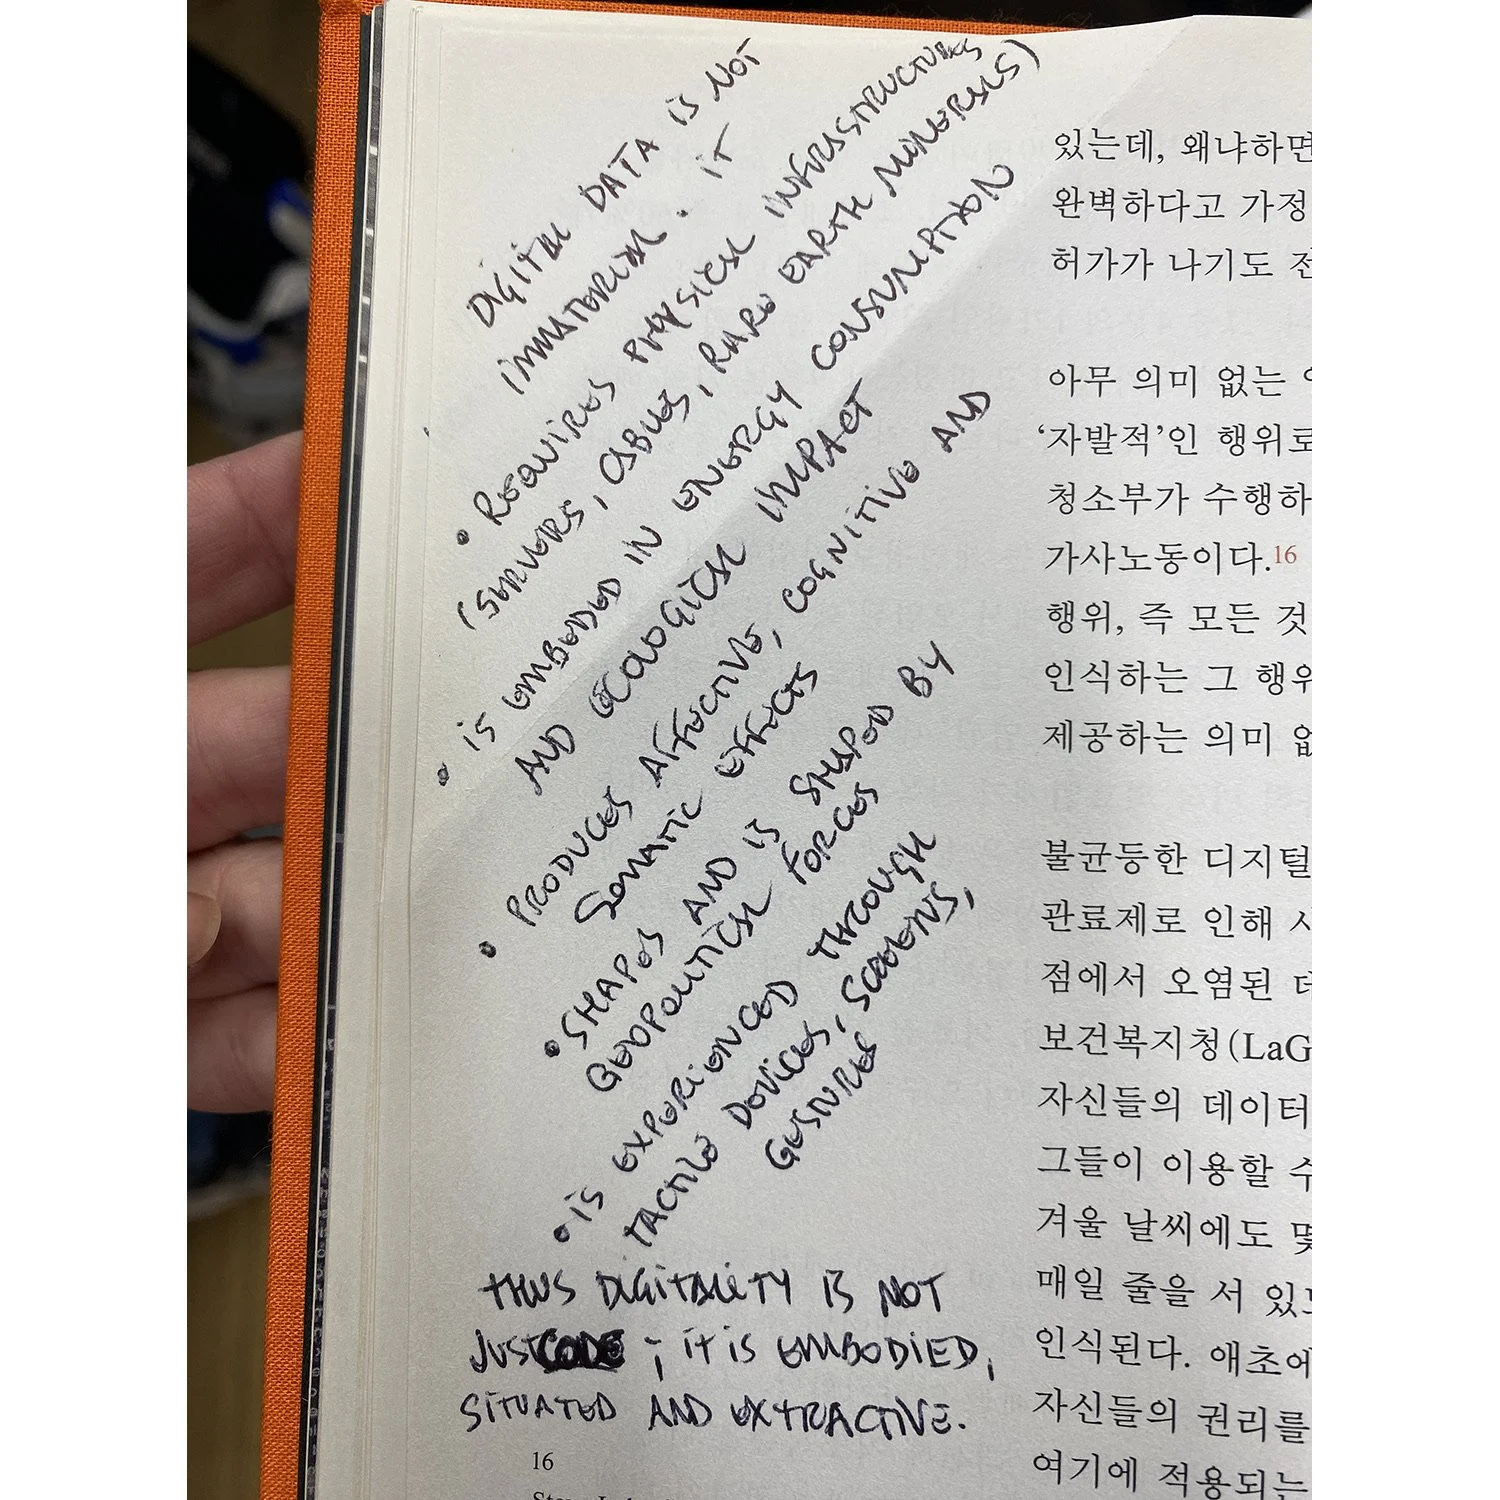 DIGITAL DATA IS NOT
IMMATERIAL. IT
• REQUIRES PHYSICAL INFRASTRUCTURES
(SERVERS, CABLES, RARE EARTH MINERALS)
• IS EMBEDDED IN ENERGY CONSUMPTION
AND ECOLOGICAL IMPACT
• PRODUCES AFFECTIVE, COGNITIVE AND
SOMATIC EFFECTS
• SHAPES AND IS SHAPED BY
GEOPOLITICAL FORCES
• IS EXPERIENCED THROUGH
TACTILE DEVICES, SCREENS,
GESTURES
THUS DIGITALITY IS NOT
JUST CODE; IT IS EMBODIED,
SITUATED AND EXTRACTIVE.
16
있는데, 왜냐하면
완벽하다고 가정
허가가 나기도 전
아무 의미 없는
‘자발적’인 행위로
청소부가 수행하
가사노동이다.16
행위, 즉 모든 것
인식하는 그 행위
제공하는 의미 없
불균등한 디지털
관료제로 인해 사
점에서 오염된 데
보건복지청(LaG
자신들의 데이터
그들이 이용할 수
겨울 날씨에도 몇
매일 줄을 서 있
인식된다. 애초에
자신들의 권리를
여기에 적용되는